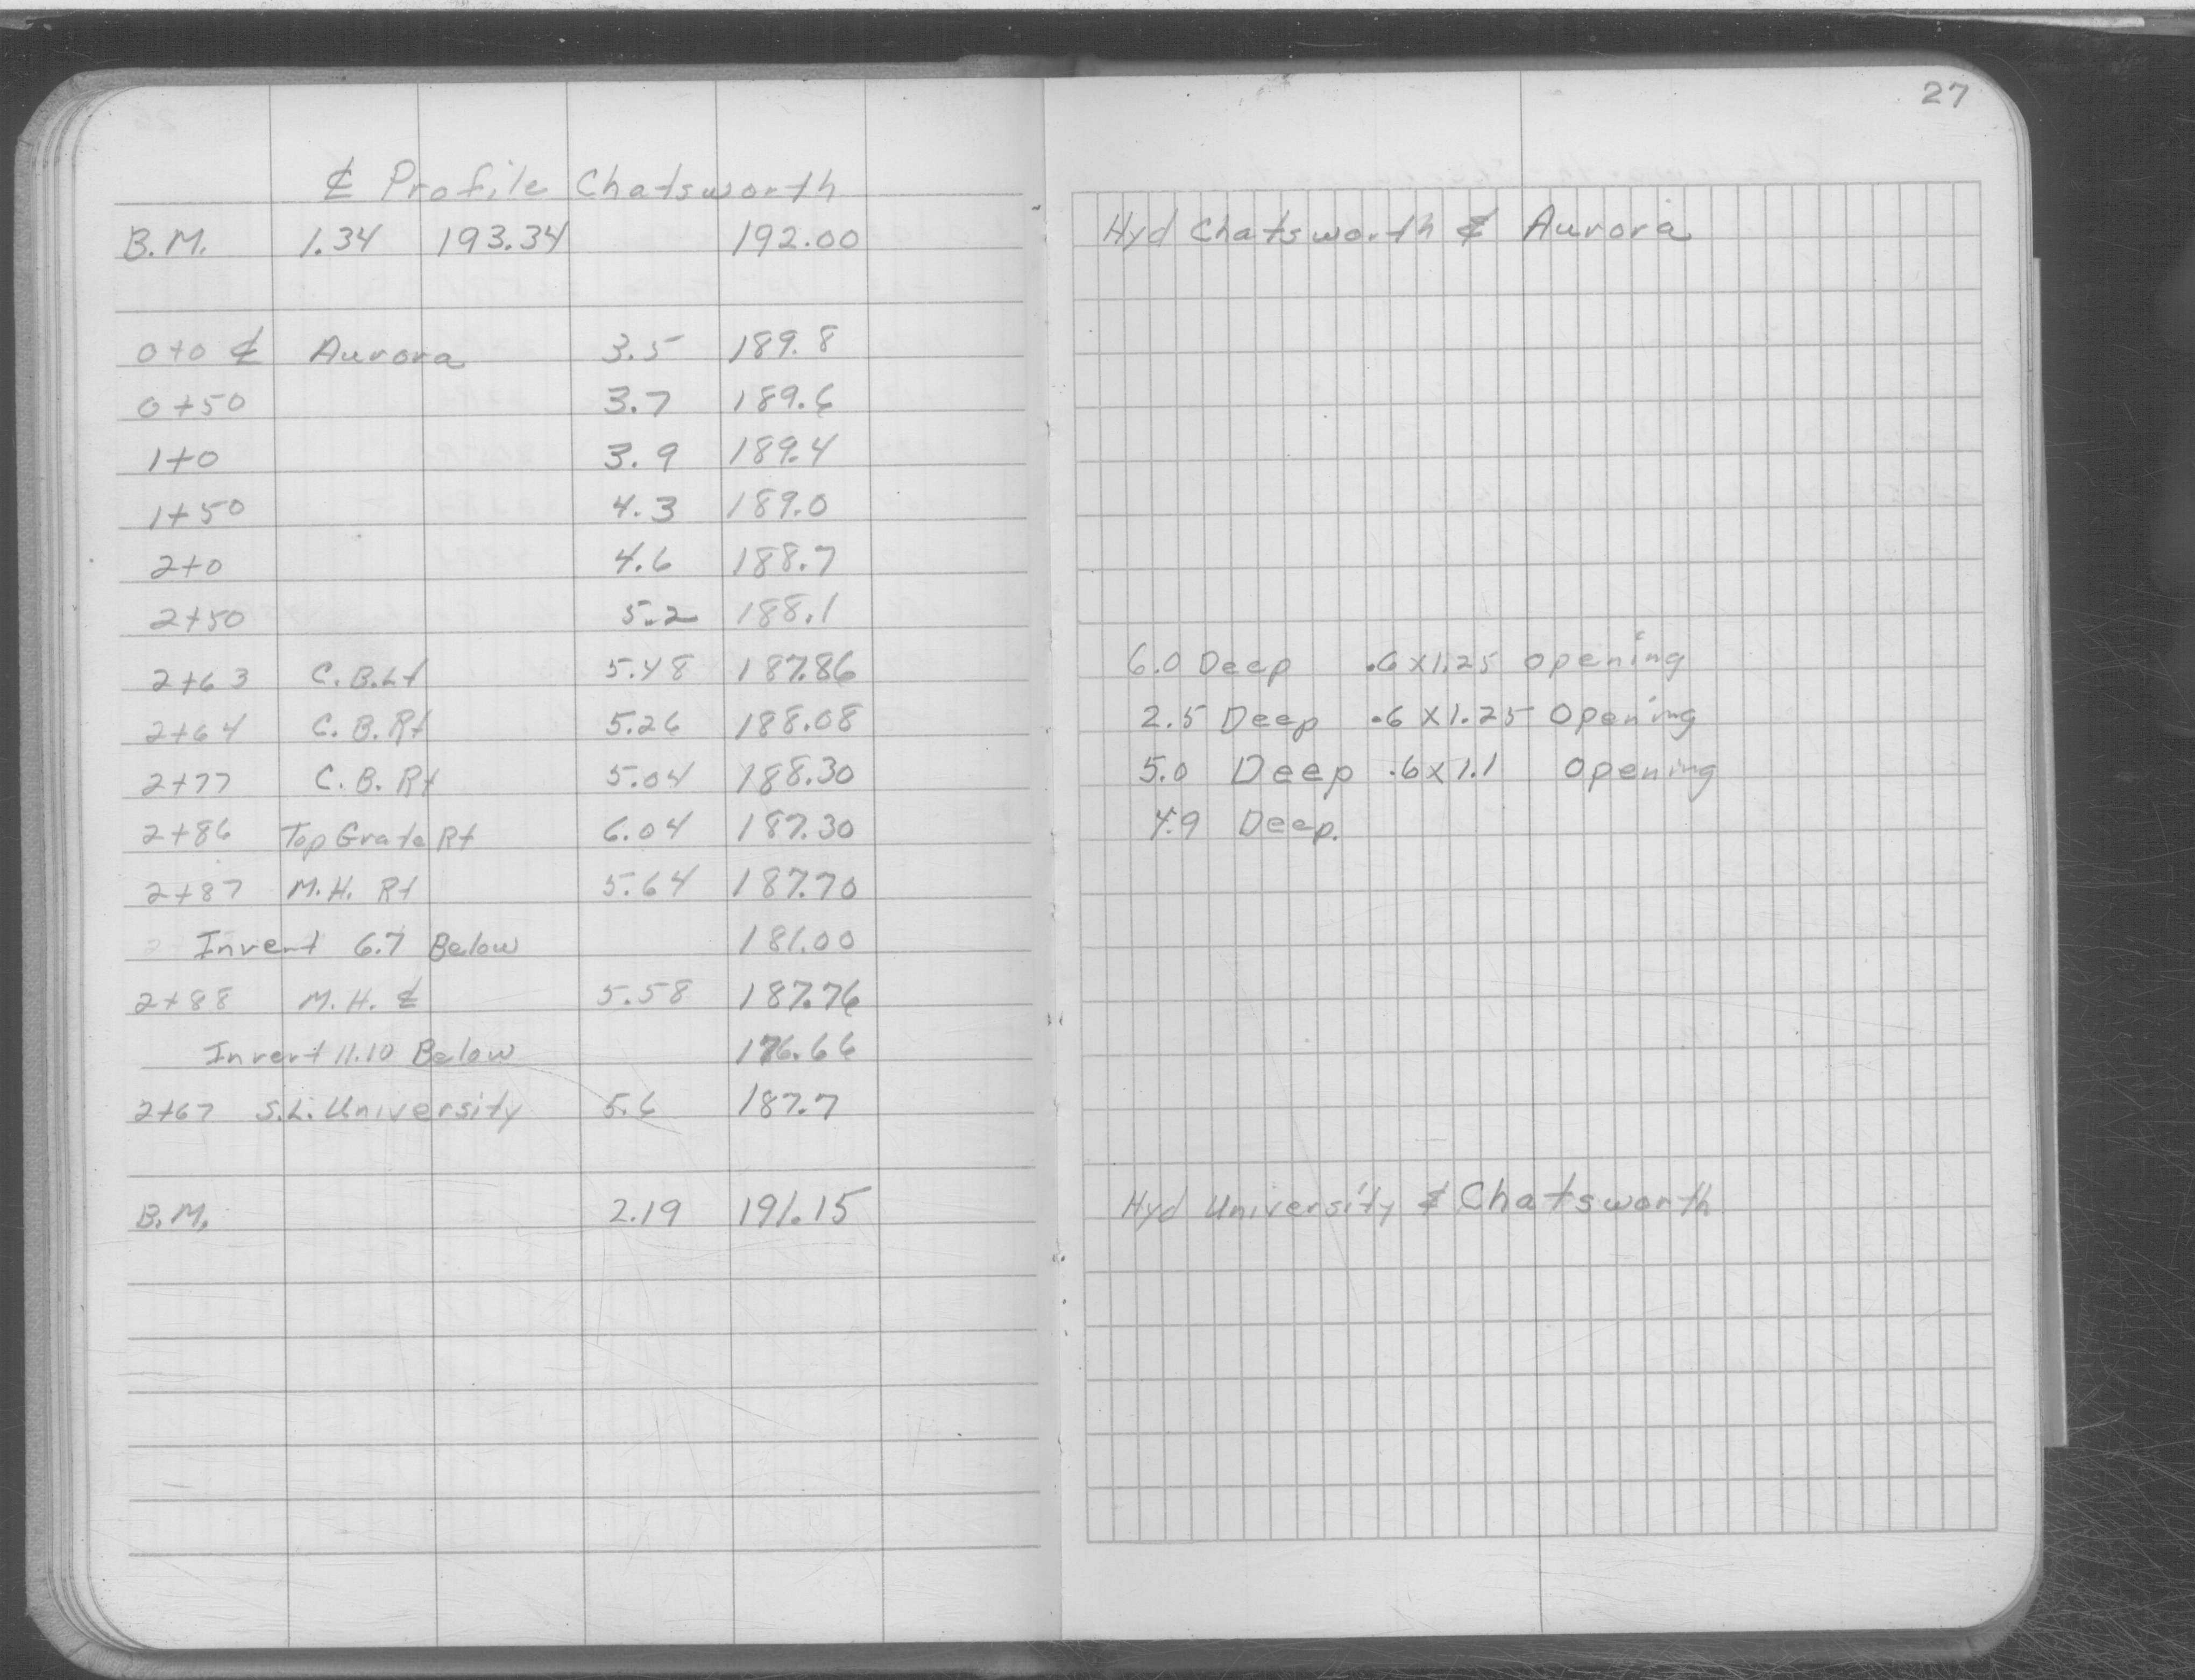 27
℄ Profile Chatsworth
B.M. 1.34 193.34 192.00 Hyd Chatsworth & Aurora
0+0 ℄ Aurora 3.5 189.8
0+50 3.7 189.6
1+0 3.9 189.4
1+50 4.3 189.0
2+0 4.6 188.7
2+50 5.2 188.1
2+63 C.B.Lt 5.48 187.86 6.0 Deep .6x1.25 opening
2+64 C.B.Rt 5.26 188.08 2.5 Deep .6x1.25 Opening
2+77 C.B.Rt 5.04 188.30 5.0 Deep .6x1.1 Opening
2+86 Top Grate Rt 6.04 187.30 4.9 Deep.
2+87 M.H. Rt 5.64 187.70
Invert 6.7 Below 181.00
2+88 M.H. ℄ 5.58 187.76
Invert 11.10 Below 176.66
2+67 S.L. University 5.6 187.7
B.M. 2.19 191.15 Hyd University & Chatsworth